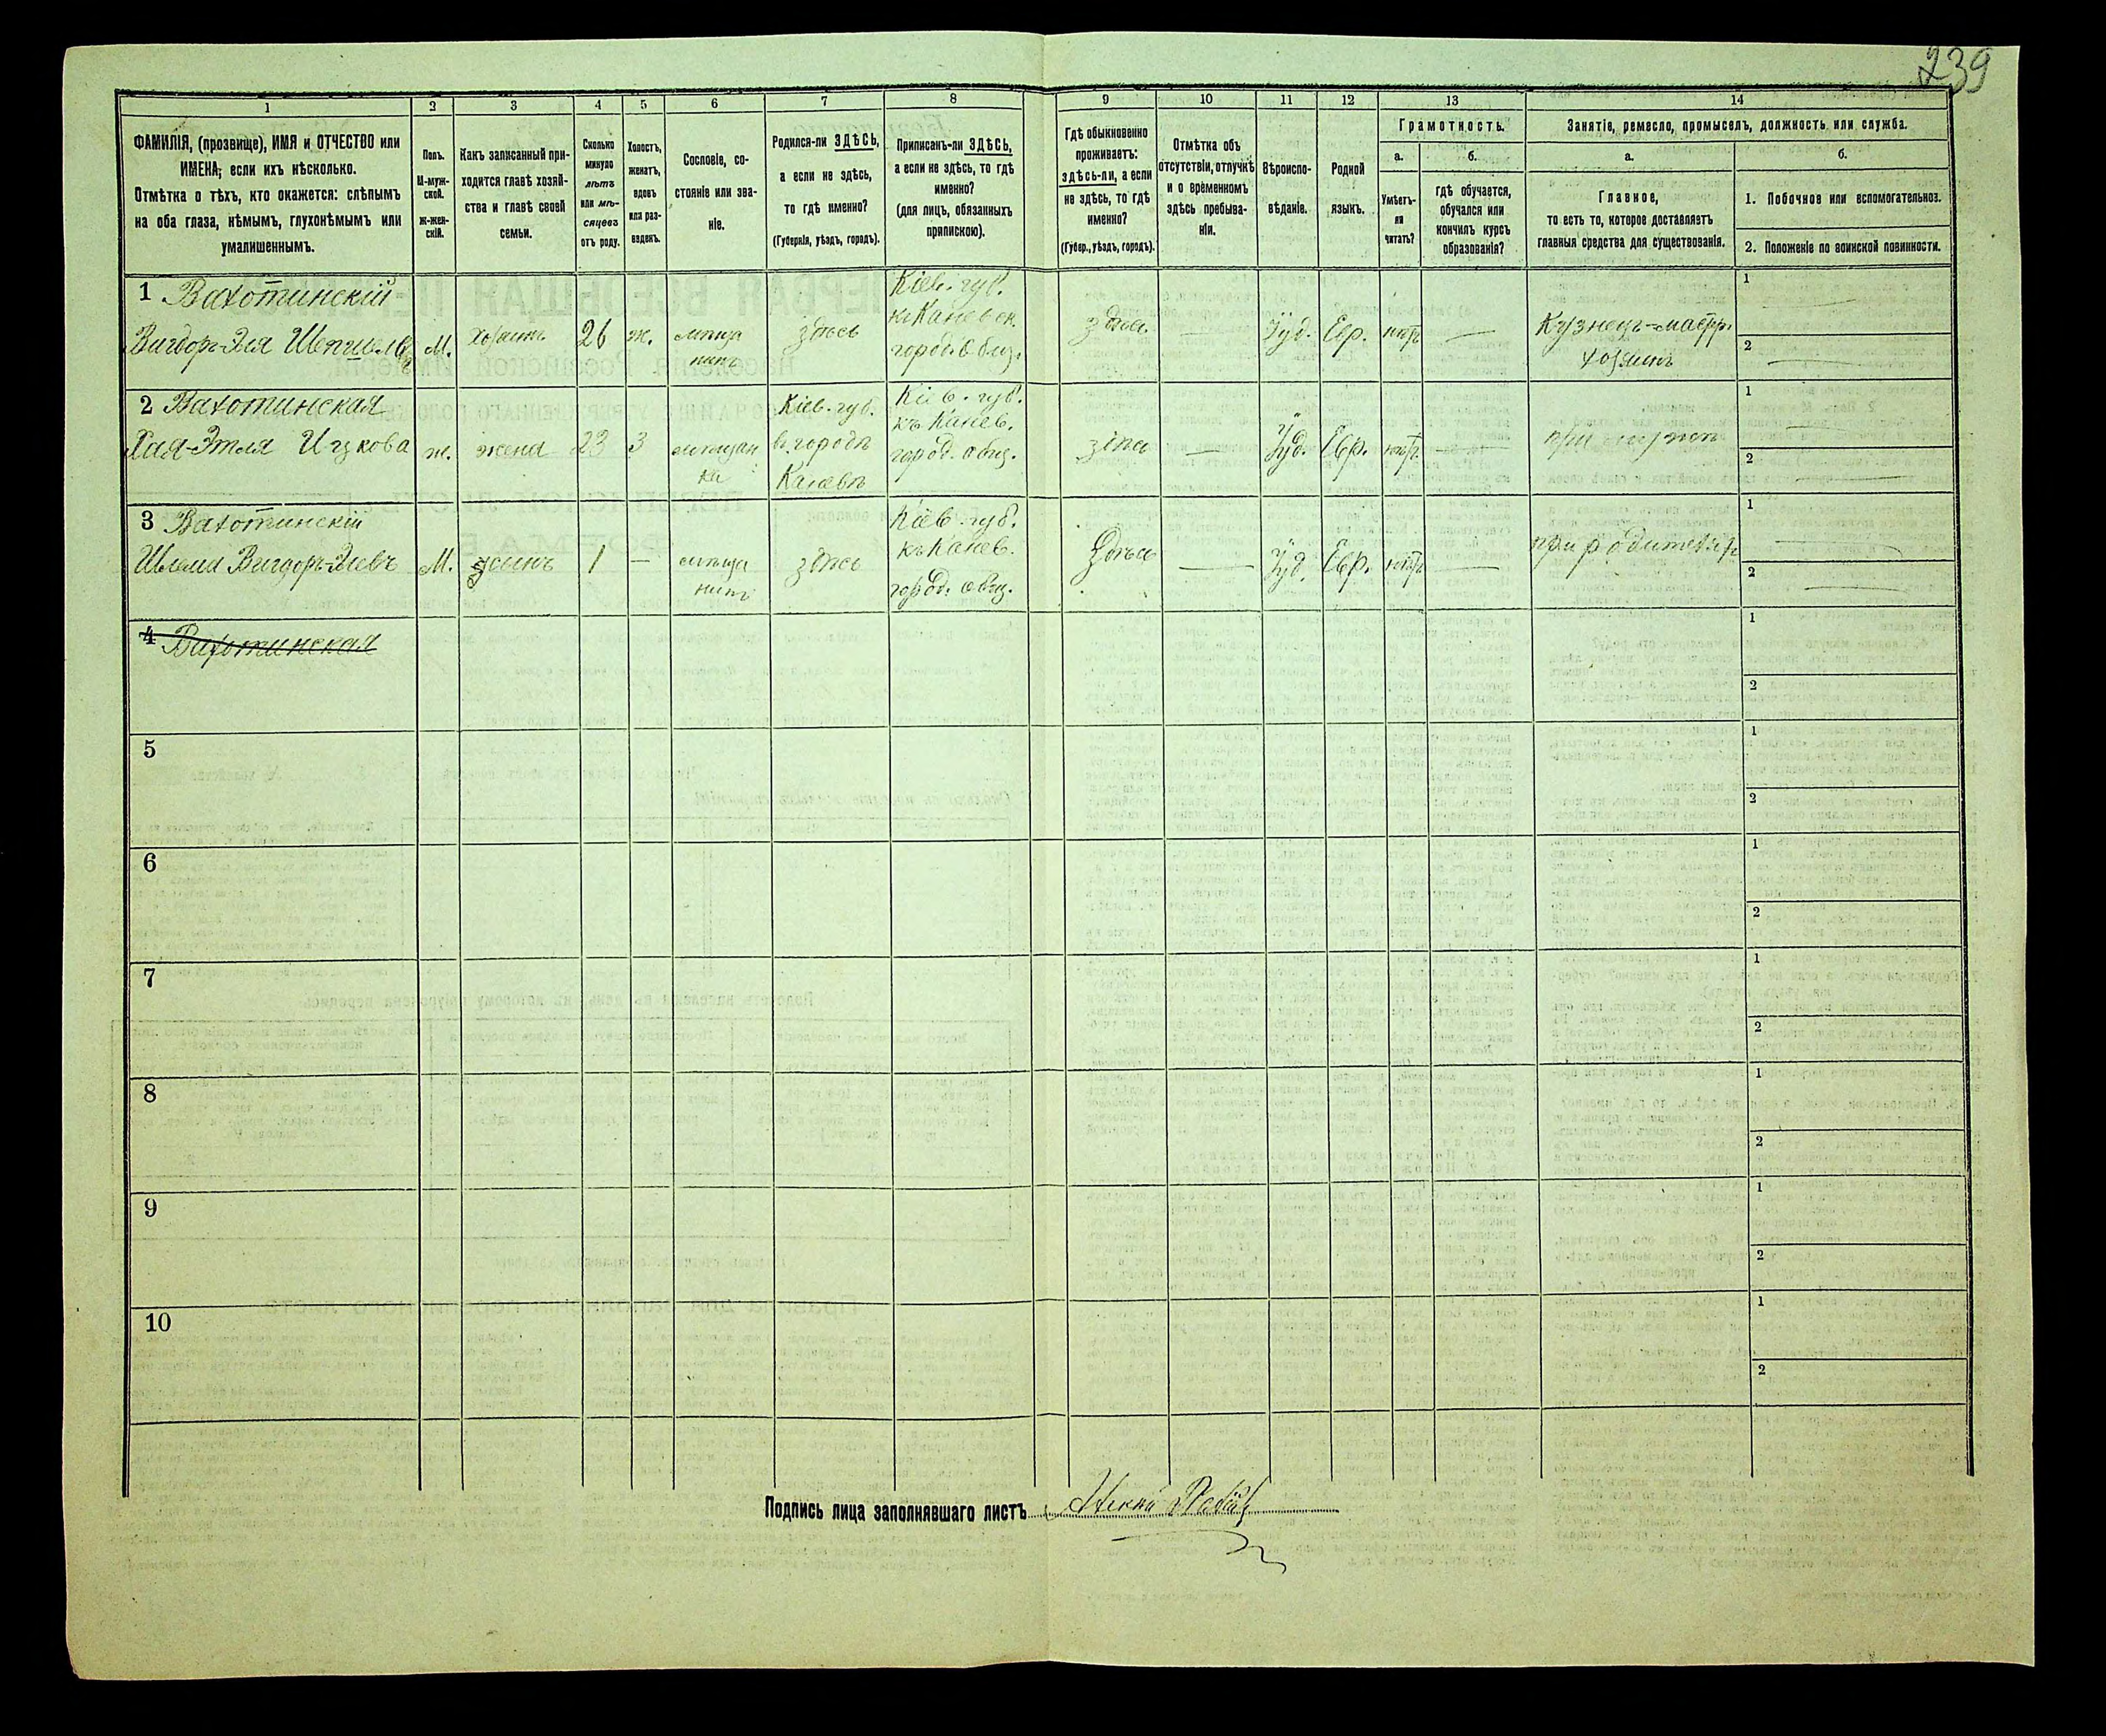 239
1 2 3 4 5 6 7 8 9 10 11 12 13 14
ФАМИЛІЯ, (прозвище), ИМЯ и ОТЧЕСТВО или
ИМЕНА, если ихъ нѣсколько.
Отмѣтка о тѣхъ, кто окажется: слѣпымъ
на оба глаза, нѣмымъ, глухонѣмымъ или
умалишеннымъ.
Полъ.
М-муж-
ской.
ж-жен-
скій.
Какъ записанный при-
ходится главѣ хозяй-
ства и главѣ своей
семьи.
Сколько
минуло
лѣтъ
или мѣ-
сяцевъ
отъ роду.
Холостъ,
женатъ,
вдовъ
или раз-
веденъ.
Сословіе, со-
стояніе или зва-
ніе.
Родился-ли ЗДѢСЬ,
а если не здѣсь,
то гдѣ именно?
(Губернія, уѣздъ, городъ).
Приписанъ-ли ЗДѢСЬ,
а если не здѣсь, то гдѣ
именно?
(для лицъ, обязанныхъ
припискою).
Гдѣ обыкновенно
проживаетъ:
здѣсь-ли, а если
не здѣсь, то гдѣ
именно?
(Губер., уѣздъ, городъ).
Отмѣтка объ
отсутствіи, отлучкѣ
и о временномъ
здѣсь пребыва-
ніи.
Вѣроиспо-
вѣданіе.
Родной
языкъ.
Грамотность.
а.
Умѣетъ-
ли
читать?
б.
гдѣ обучается,
обучался или
кончилъ курсъ
образованія?
Занятіе, ремесло, промыселъ, должность или служба.
а.
Главное,
то есть то, которое доставляетъ
главныя средства для существованія.
б.
1. Побочное или вспомогательное.
2. Положеніе по воинской повинности.
1 Вахотинскій
Вигдоръ-Эля
М.
хозяинъ
26
ж.
мѣща
нинъ
здѣсь
Кіев. губ.
город.
здѣсь
Іуд.
Евр.
нѣтъ
—
Кузнецъ-мастер.
хозяинъ
1 —
2 —
2 Вахотинская
Хая-Этля Ицкова
ж.
жена
23
З
мѣщан
ка
Кіев. губ.
въ городѣ
Каневѣ
Кіев. губ.
къ Канев.
город. общ.
здѣсь
—
Іуд.
Евр.
нѣтъ
—
при мужѣ
1 —
2 —
3 Вахотинскій
Шлема Вигдоръ-Элевъ
М.
сынъ
1
—
мѣща
нинъ
здѣсь
Кіев. губ.
къ Канев.
город. общ.
здѣсь
—
Іуд.
Евр.
нѣтъ
—
при родителяхъ
1 —
2 —
4 Вахотинская
1
2
5
1
2
6
1
2
7
1
2
8
1
2
9
1
2
10
1
2
Подпись лица заполнявшаго листъ